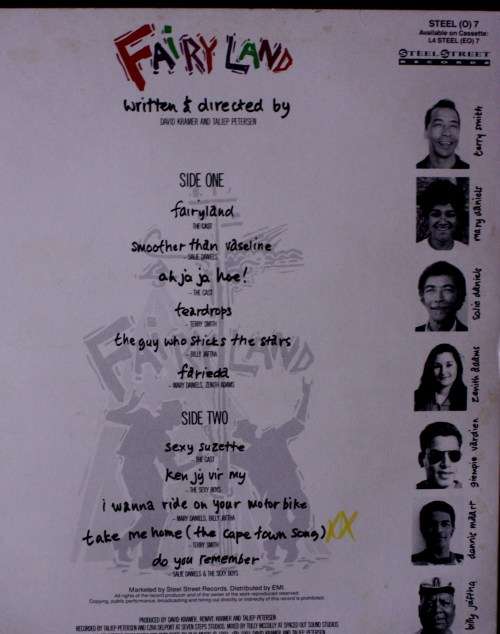 STEEL (O) 7
Available on Cassette:
L4 STEEL (EO) 7
STEEL STREET
RECORDS
FAIRY LAND
written & directed by
DAVID KRAMER AND TALIEP PETERSEN
SIDE ONE
fairyland
THE CAST
smoother than vaseline
- SALIE DANIELS
ah ja ja hoe!
- THE CAST
teardrops
- TERRY SMITH
the guy who sticks the stars
- BILLY JEFTHA
farieda
- MARY DANIELS, ZENITH ADAMS
SIDE TWO
sexy suzette
- THE CAST
ken jy vir my
- THE SEXY BOYS
i wanna ride on your motor bike
- MARY DANIELS, BILLY JEFTHA
take me home (the cape town song) XX
- TERRY SMITH
do you remember
- SALIE DANIELS & THE SEXY BOYS
FAIRY LAND
terry smith
mary daniels
salie daniels
zenith adams
giempie vardien
dannie maart
billy jeftha
Marketed by Steel Street Records. Distributed by EMI.
All rights of the record producer and of the owner of the work reproduced reserved.
Copying, public performance, broadcasting and hiring out directly or indirectly of this record is prohibited.
PRODUCED BY DAVID KRAMER, RENAYE KRAMER AND TALIEP PETERSEN
RECORDED BY TALIEP PETERSEN AND EZRA DELPORT AT SEVEN STEPS STUDIOS. MIXED BY TULLY MCCULLY AT SPACED OUT SOUND STUDIOS